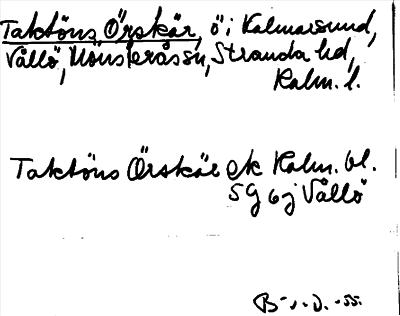 Taktöns Örskär, ö i Kalmarsund,
Vållö, Mönsterås sn, Stranda hd,
Kalm. l.
Taktöns Örskär ek Kalm. bl.
5G 6j Vållö